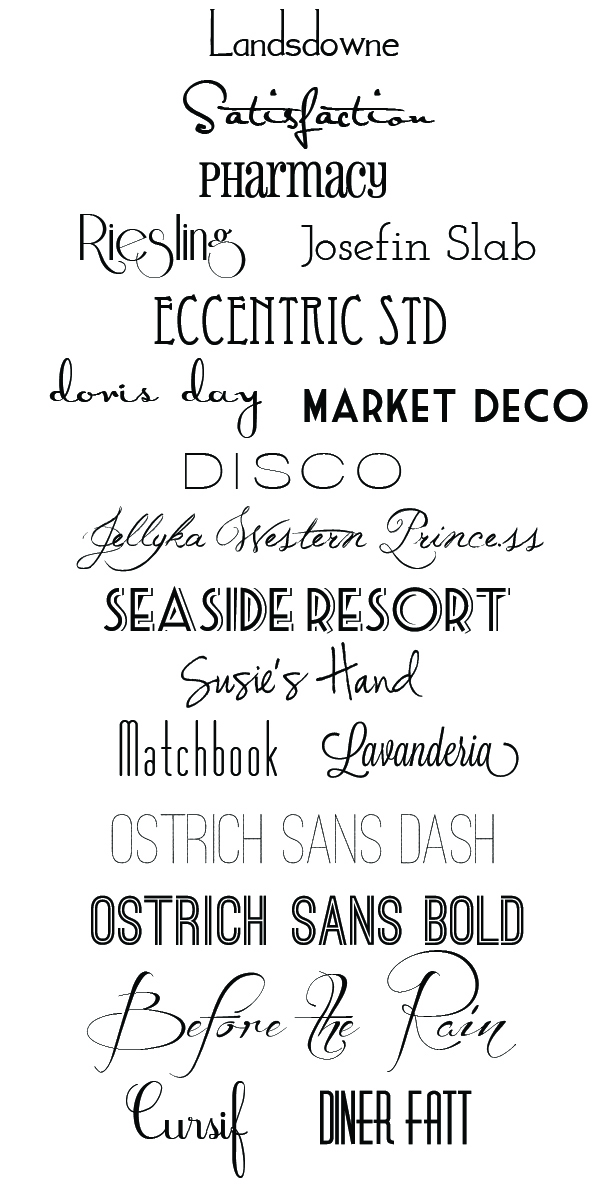 Landsdowne
Satisfaction
PHarmacy
Riesling Josefin Slab
ECCENTRIC STD
doris day MARKET DECO
DISCO
Jellyka Western Princess
SEASIDE RESORT
Susie's Hand
Matchbook Lavanderia
OSTRICH SANS DASH
OSTRICH SANS BOLD
Before the Rain
Cursif DINER FATT